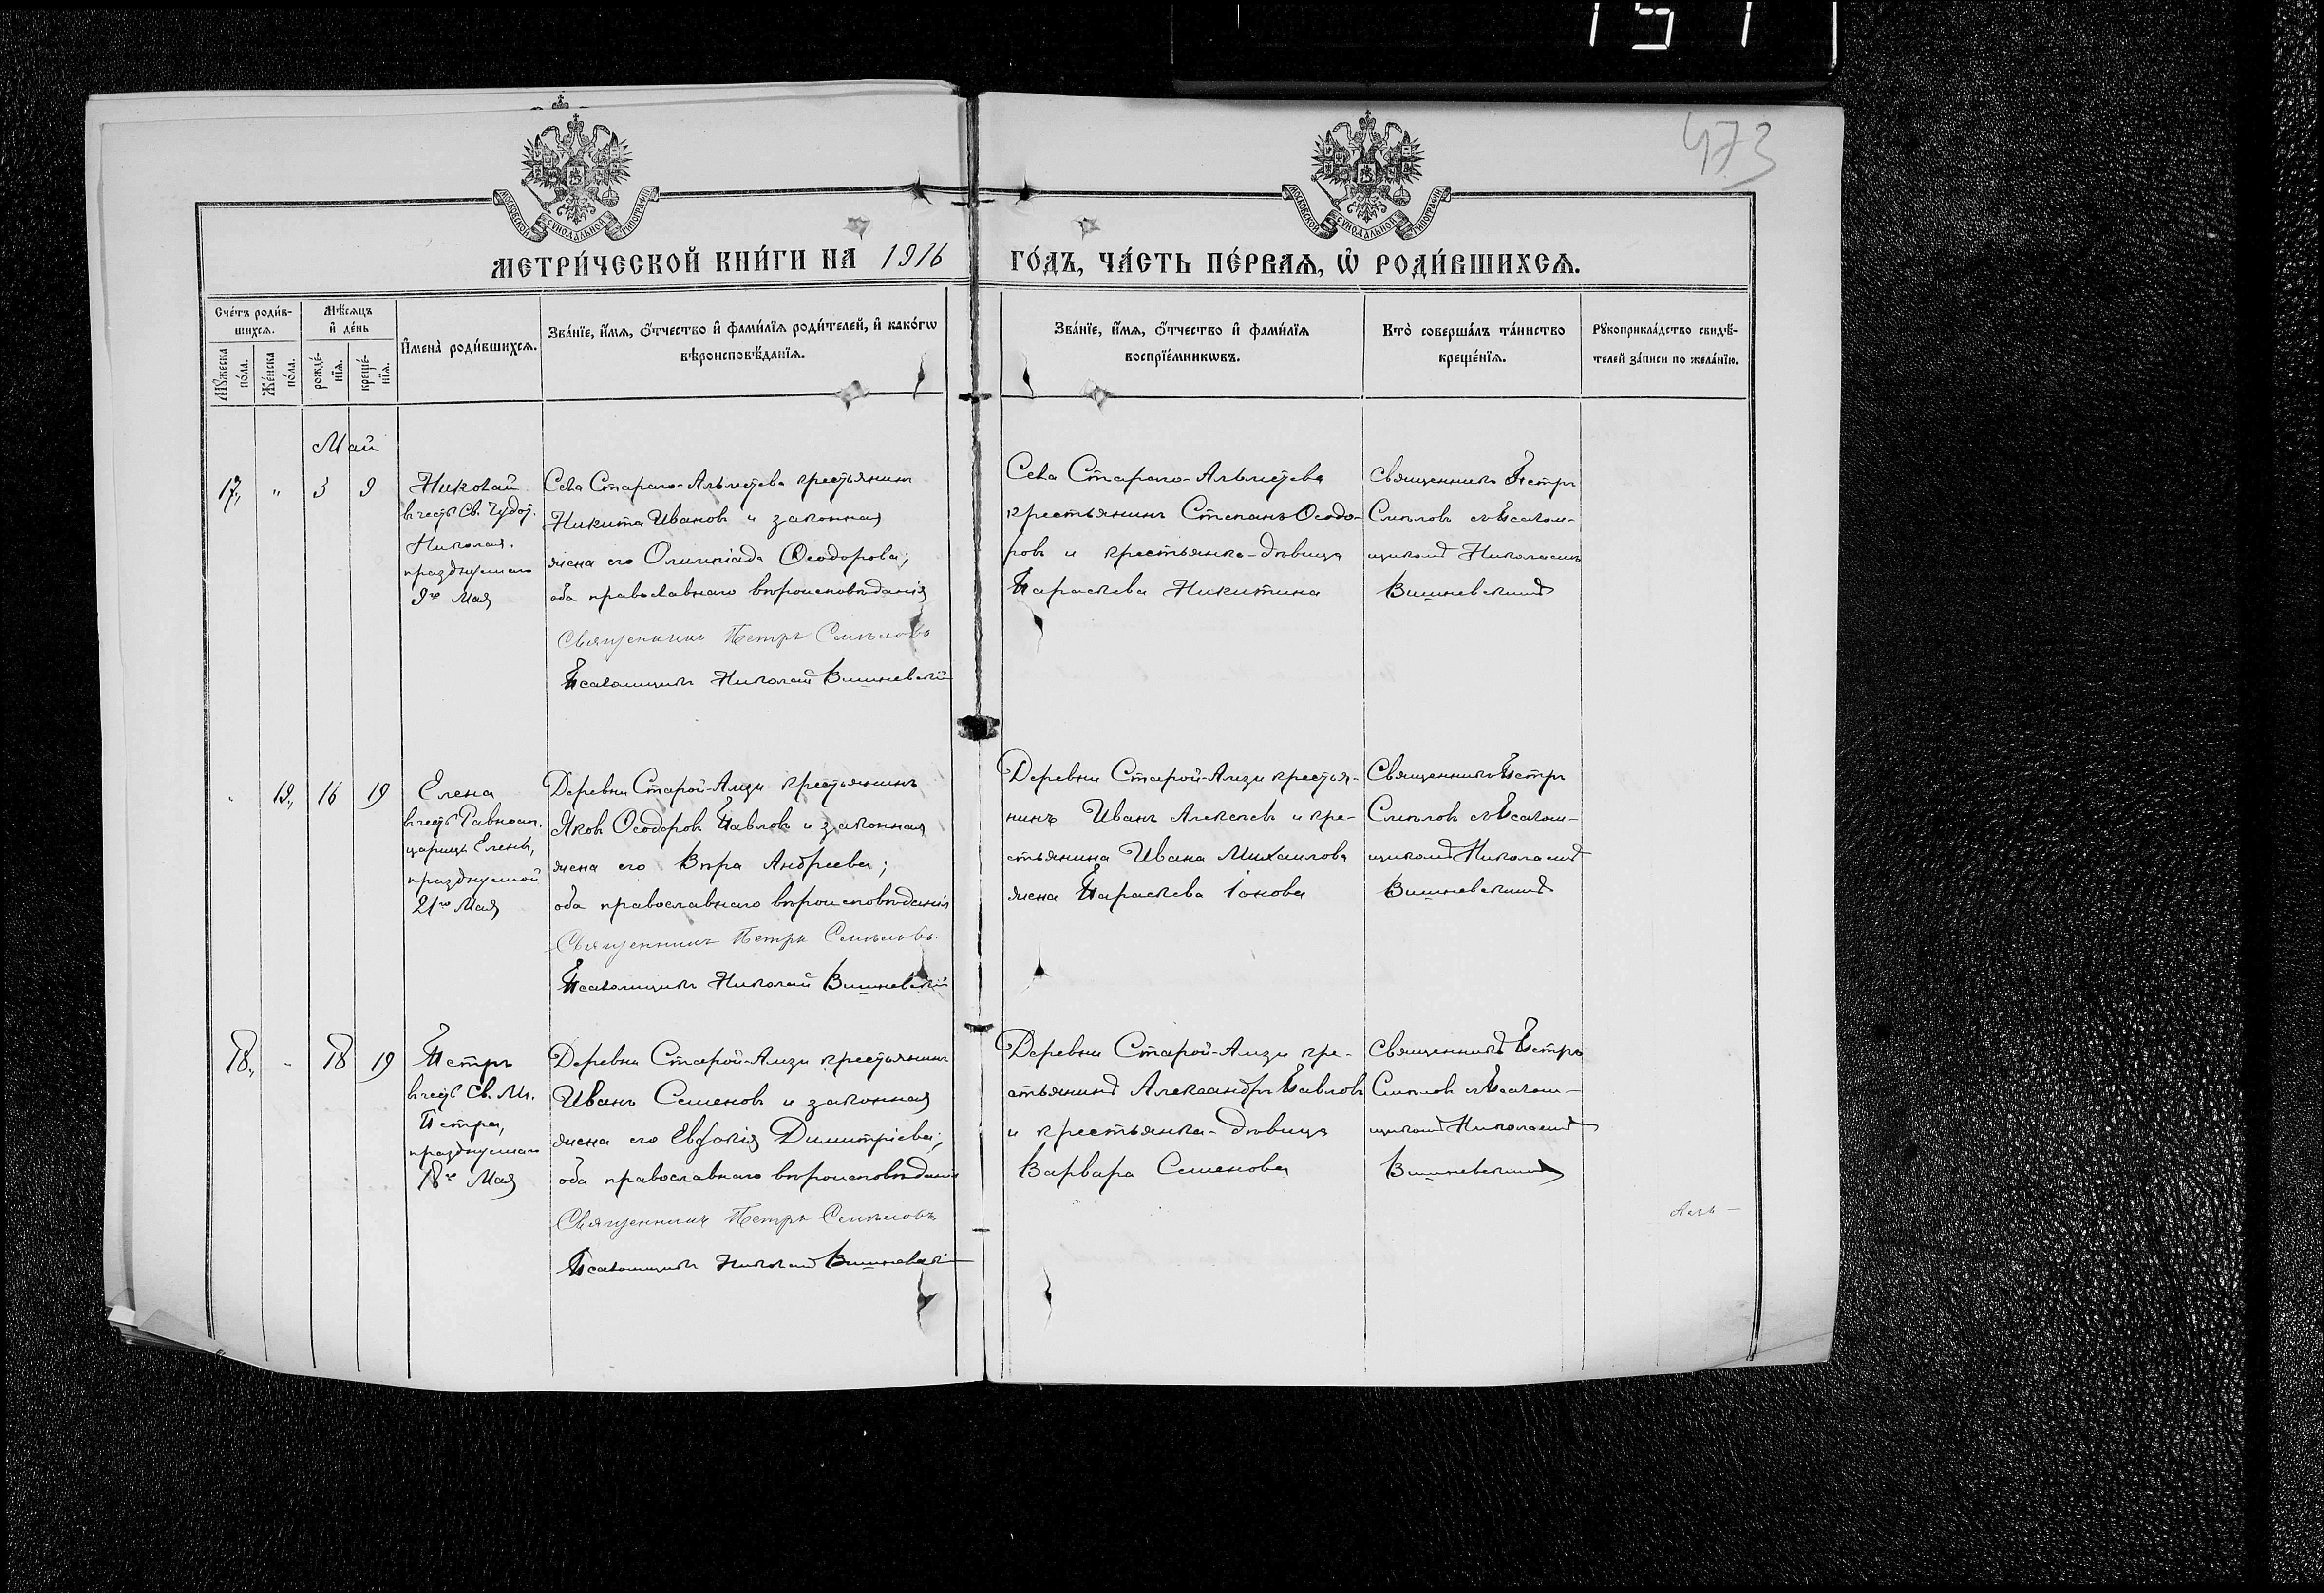 151
473
МОСКОВСКОЙ СѴНОДАЛЬНОЙ ТИПОГРАФІИ
МОСКОВСКОЙ СѴНОДАЛЬНОЙ ТИПОГРАФІИ
МЕТРИ́ЧЕСКОЙ КНИ́ГИ НА 1916 ГО́ДЪ, ЧА́СТЬ ПЕ́РВАѦ, Ѡ҆ РОДИ́ВШИХСѦ.
Сче́тъ роди́в-
шихсѧ.
Мꙋ́жеска
по́ла.
Же́нска
по́ла.
Мѣ́сѧцъ
и҆ де́нь
рожде́-
нїѧ.
креще́-
нїѧ.
И҆мена̀ роди́вшихсѧ.
Зва́нїе, и҆́мѧ, ѻ҆́тчество и҆ фами́лїѧ роди́телей, и҆ како́гѡ
вѣроисповѣ́данїѧ.
Зва́нїе, и҆́мѧ, ѻ҆́тчество и҆ фами́лїѧ
воспрїе́мникѡвъ.
Кто̀ соверша́лъ та́инство
креще́нїѧ.
Рꙋкоприкла́дство свидѣ́-
телей за́писи по жела́нїю.
Май
17,, " 3 9
Николай
въ честь Св. Чудот.
Николая.
празднуемаго
9го Мая
Села Стараго-Альметева крестьянинъ
Никита Ивановъ и законная
жена его Олимпіада Ѳеодорова;
оба православнаго вѣроисповѣданія
Священникъ Петръ Смѣловъ
Псаломщикъ Николай Вишневскій
Села Стараго-Альметева
крестьянинъ Степанъ Ѳеодо-
ровъ и крестьянка-дѣвица
Параскева Никитина
Священникъ Петръ
Смѣловъ съ Псалом-
щикомъ Николаемъ
Вишневскимъ
19,, 16 19
Елена
въ честь Равноап.
царицы Елены,
празднуемой
21го Мая
Деревни Старой-Амзи крестьянинъ
Яковъ Ѳеодоровъ Павловъ и законная
жена его Вѣра Андреева;
оба православнаго вѣроисповѣданія
Священникъ Петръ Смѣловъ.
Псаломщикъ Николай Вишневскій
Деревни Старой-Амзи крестья-
нинъ Иванъ Алексѣевъ и кре-
стьянина Ивана Михаилова
жена Параскева Іонова
Священникъ Петръ
Смѣловъ съ Псалом-
щикомъ Николаемъ
Вишневскимъ
18,, - 18 19
Петръ
въ честь Св. Мч.
Петра,
празднуемаго
18го Мая
Деревни Старой-Амзи крестьянинъ
Иванъ Семеновъ и законная
жена его Евдокія Димитріева;
оба православнаго вѣроисповѣданія
Священникъ Петръ Смѣловъ
Псаломщикъ Николай Вишневскій
Деревни Старой-Амзи кре-
стьянинъ Александръ Павловъ
и крестьянка-дѣвица
Варвара Семенова
Священникъ Петръ
Смѣловъ съ Псалом-
щикомъ Николаемъ
Вишневскимъ